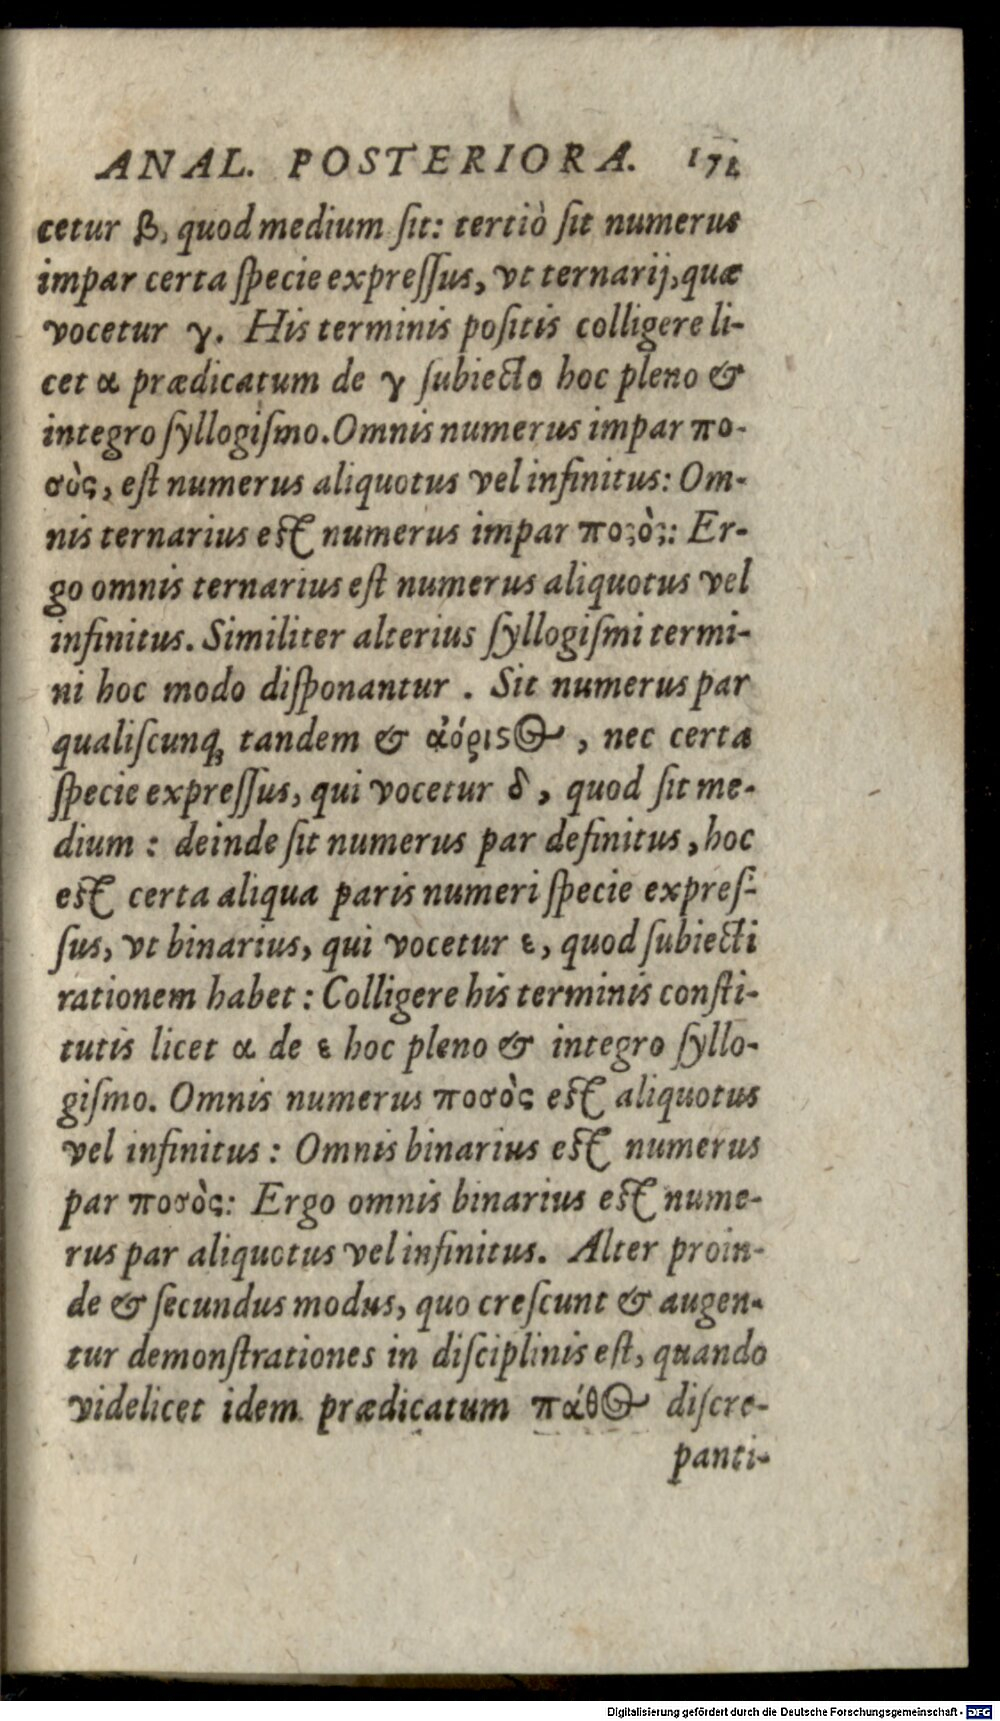 ANAL. POSTERIORA. 171
cetur β, quod medium ſit: tertiò ſit numerus
impar certa ſpecie expreſſus, vt ternarij, quæ
vocetur γ. His terminis poſitis colligere li-
cet α prædicatum de γ ſubiecto hoc pleno &
integro ſyllogiſmo. Omnis numerus impar πο-
σὸς, eſt numerus aliquotus vel infinitus: Om-
nis ternarius eſt numerus impar ποσὸς: Er-
go omnis ternarius eſt numerus aliquotus vel
infinitus. Similiter alterius ſyllogiſmi termi-
ni hoc modo diſponantur. Sit numerus par
qualiſcunq; tandem & ἀόριϛος, nec certa
ſpecie expreſſus, qui vocetur δ, quod ſit me-
dium: deinde ſit numerus par definitus, hoc
eſt certa aliqua paris numeri ſpecie expreſ-
ſus, vt binarius, qui vocetur ε, quod ſubiecti
rationem habet: Colligere his terminis conſti-
tutis licet α de ε hoc pleno & integro ſyllo-
giſmo. Omnis numerus ποσὸς eſt aliquotus
vel infinitus: Omnis binarius eſt numerus
par ποσὸς: Ergo omnis binarius eſt nume-
rus par aliquotus vel infinitus. Alter proin-
de & ſecundus modus, quo creſcunt & augen-
tur demonſtrationes in diſciplinis eſt, quando
videlicet idem prædicatum πάθος diſcre-
panti-
Digitalisierung gefördert durch die Deutsche Forschungsgemeinschaft - DFG